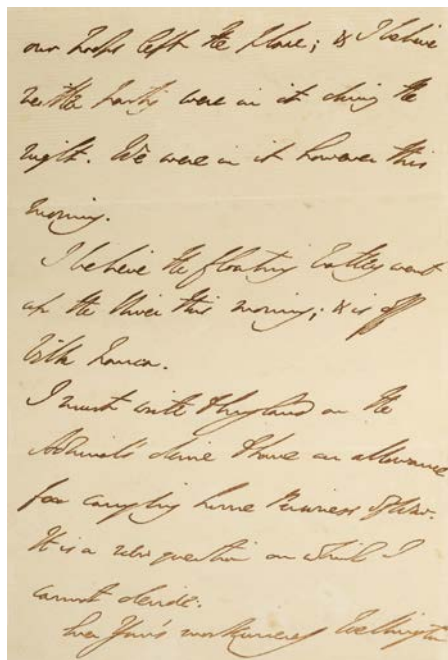 our troops left the place; & I believe
neither party were in it during the
night. We were in it however this
morning.
I believe the floating Battery went
up the River this morning; & is off
Villa Franca.
I must write to England on the
Admiral's desire to have an allowance
for carrying home Prisoners of War.
It is a new question on which I
cannot decide.
Ever Yours most sincerely Wellington